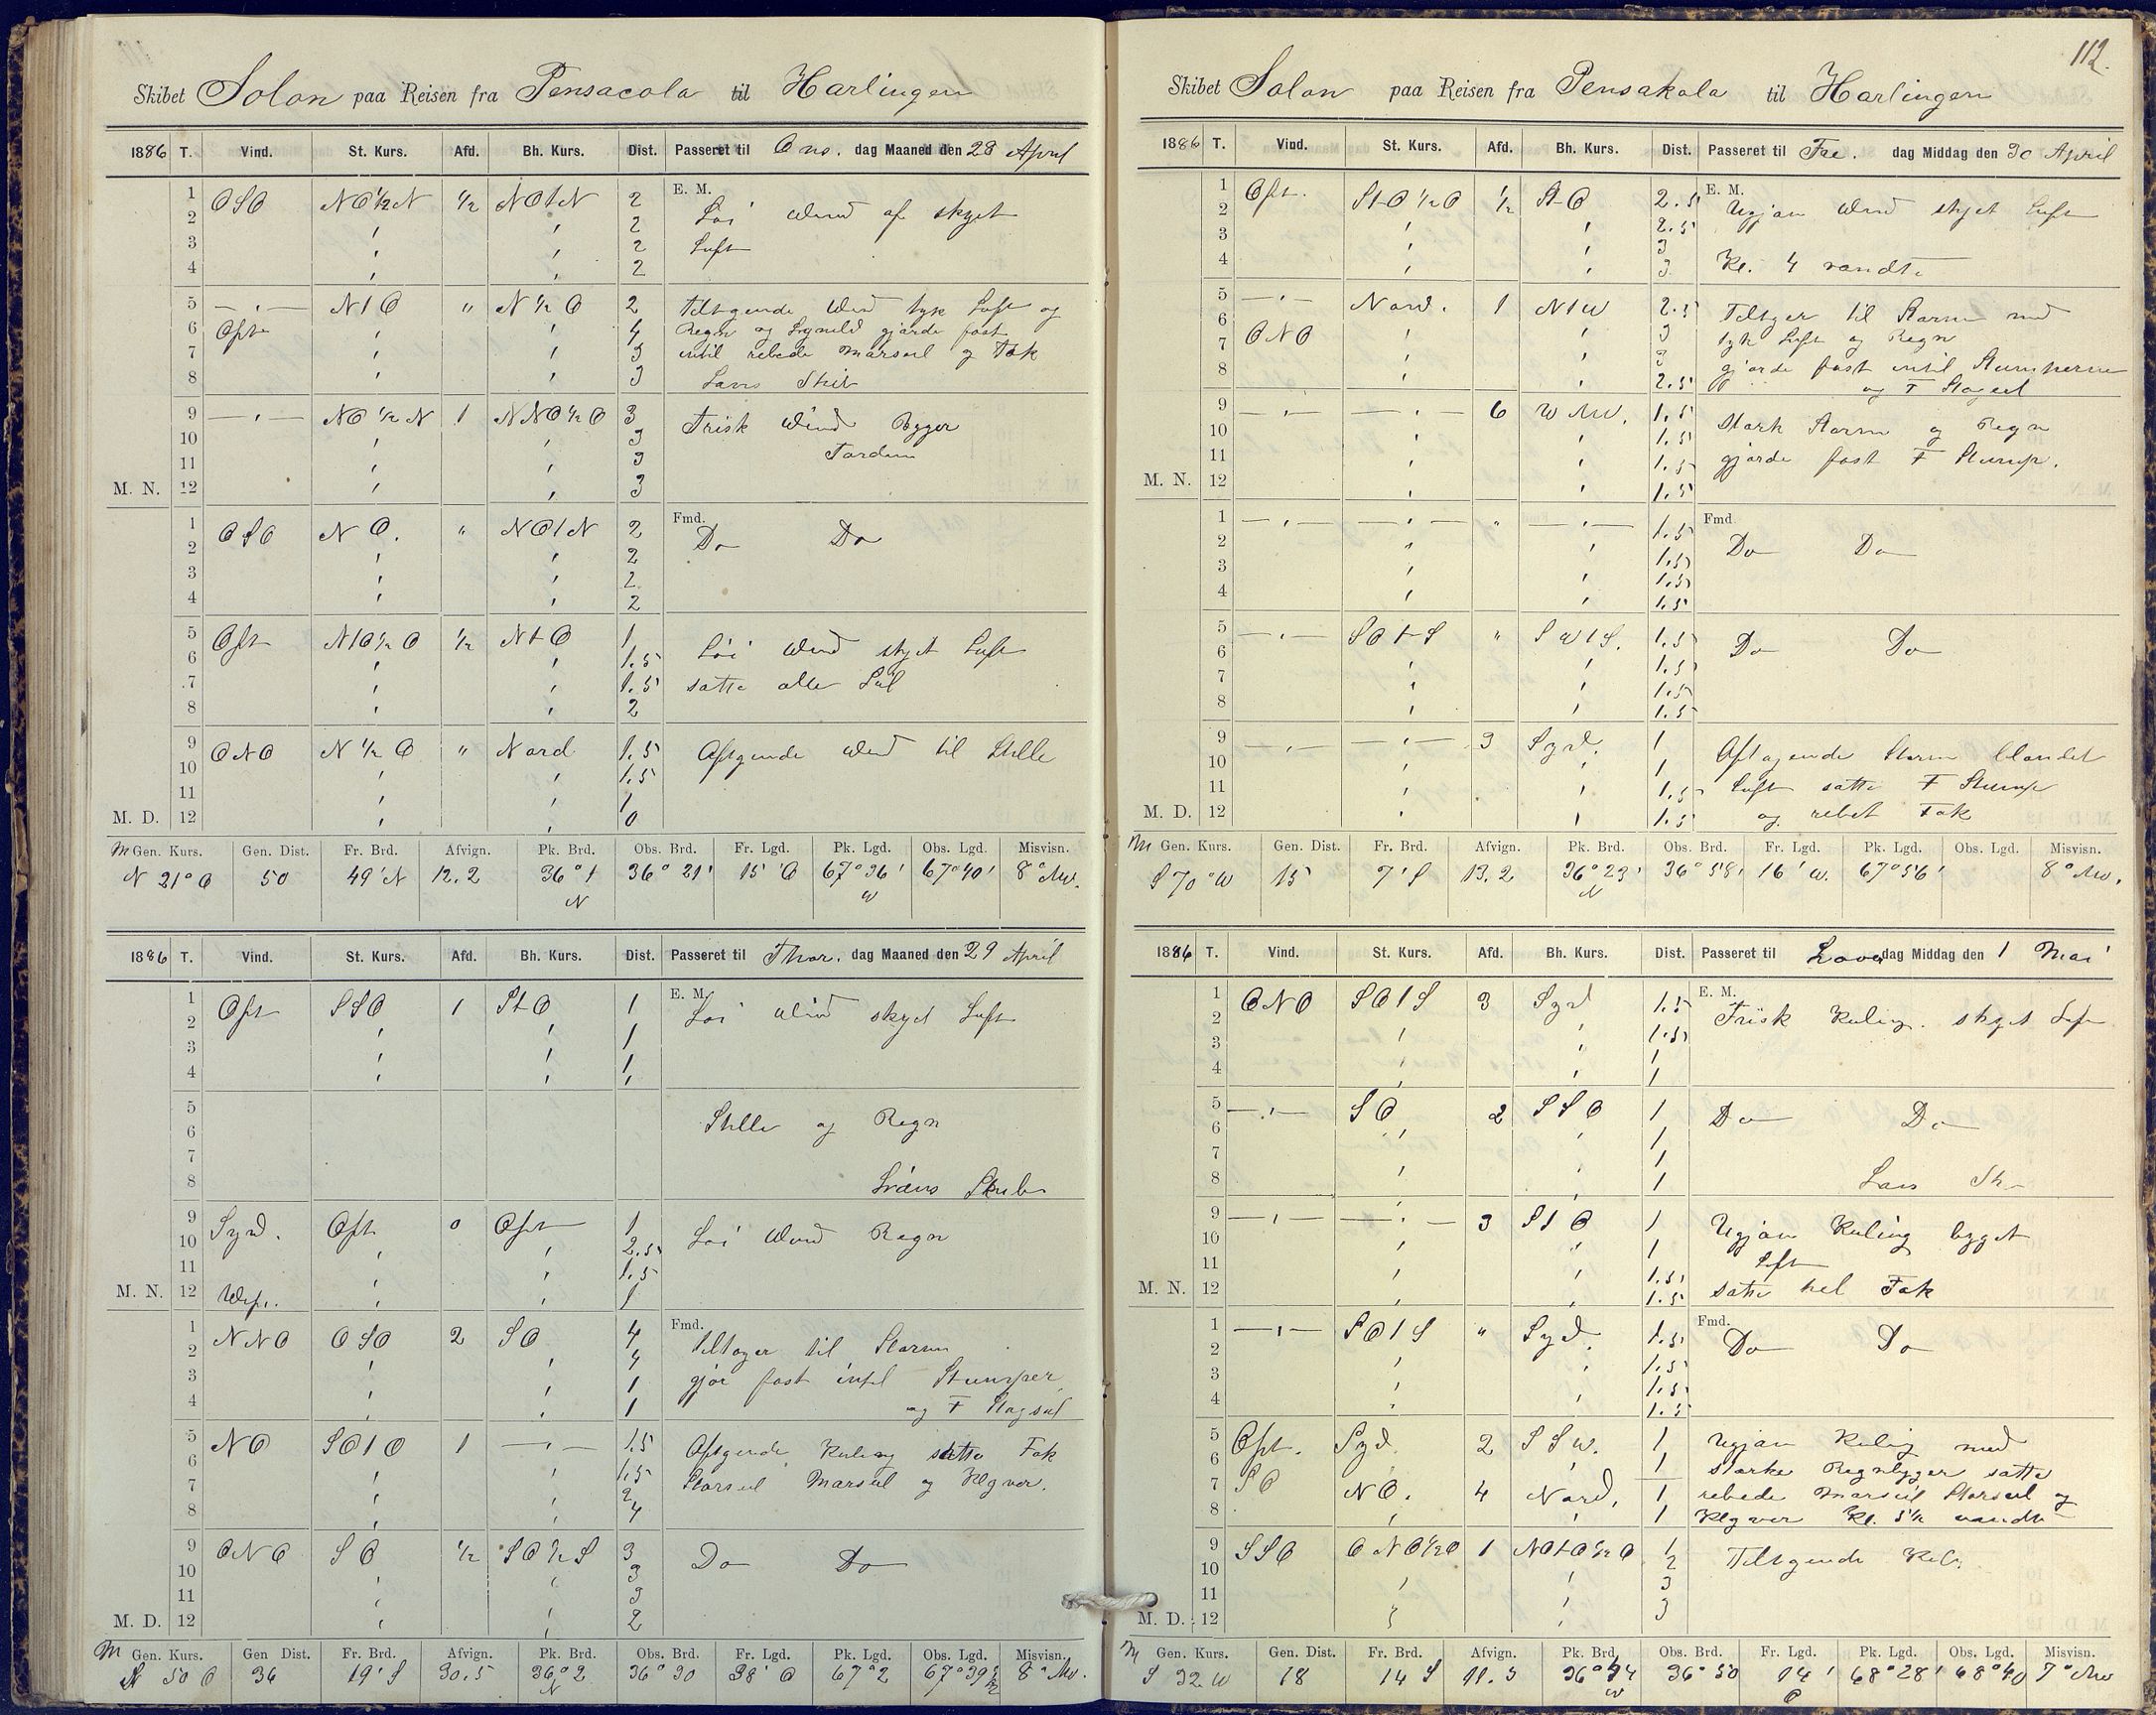 Skibet Solon paa Reisen fra Pensacola til Harlingen
1886 T. Vind. St. Kurs. Afd. Bh. Kurs. Dist. Passeret til Ons. dag Maaned den 28 April
1 OSO NO½N ½ NOtN 2 E. M.
2 ' ' 2 Løi Vind af skyet
3 ' ' 2 Luft
4 ' ' 2
5 —"— NtO " N½O 2 Tiltgende Vind tyk Luft og
6 Øst ' ' 4 Regn og Lynild gjorde fast
7 ' ' 3 indtil rebede Mærsseil og Fok
8 ' ' 3
9 —"— NO½N 1 NNO½O 3 Frisk Vind Byger
10 ' ' 3 Torden
11 ' ' 3
M. N. 12 ' ' 3
1 OSO NO. " NOtN 2 Fmd.
2 ' ' 2 Do Do
3 ' ' 2
4 ' ' 2
5 Øst NtO½O ½ NtO 1
6 ' ' 1.5 Løi Vind skyet Luft
7 ' ' 1.5 satte alle Seil
8 ' ' 2
9 ONO N½O " Nord 1.5 Aftgende Vind til Stille
10 ' ' 1.5
11 ' ' 1
M. D. 12 ' ' 0
M Gen. Kurs. Gen. Dist. Fr. Brd. Afvign. Pk. Brd. Obs. Brd. Fr. Lgd. Pk. Lgd. Obs. Lgd. Misvisn.
N 21° O 50 49' N 12.2 36° 1 N 36° 21' 15' O 67° 36' W 67° 40' 8° NW.
1886 T. Vind. St. Kurs. Afd. Bh. Kurs. Dist. Passeret til Thor. dag Maaned den 29 April
1 Øst SSO 1 StO 1 E. M.
2 ' ' 1 Løi Vind skyet Luft
3 ' ' 1
4 ' ' 1
5
6 Stille og Regn
7
8
9 Syd. Øst 0 Øst 1
10 ' ' 2.5 Løi Vind Regn
11 ' ' 1.5
M. N. 12 ' ' 1
1 NNO OSO 2 SO 4 Fmd.
2 ' ' 4 Tiltager til Storm
3 ' ' 1 gjør fast indtil Stumper
4 ' ' 1 og F Stagseil
5 NO SOtO 1 —"— 1.5 Aftgende Kuling satte Fok
6 ' ' 1.5 Storseil Mærsseil og Klyver.
7 ' ' 2
8 ' ' 4
9 ONO SO ½ SO½S 3
10 ' ' 3 Do Do
11 ' ' 3
M. D. 12 ' ' 2
M Gen. Kurs. Gen Dist. Fr. Brd. Afvign. Pk. Brd. Obs. Brd. Fr. Lgd. Pk. Lgd. Obs. Lgd. Misvisn.
50 O 36 19' S 30.5 36° 2 N 36° 30 38' O 67° 2 67° 39 8° NW.
112.
Skibet Solon paa Reisen fra Pensakola til Harlingen
1886 T. Vind. St. Kurs. Afd. Bh. Kurs. Dist. Passeret til Fre. dag Middag den 30 April
1 Øst. StO½O ½ StO 2.5 E. M.
2 2.5 Ugjøvn Vind skyet Luft
3 ' ' 3
4 ' ' 3 Kl. 4 vendte
5 —"— Nord. 1 NtW 2.5 Tiltger til Storm med
6 ' ' 3 tyk Luft og Regn
7 ONO ' ' 3 gjorde fast indtil Stumperne
8 ' ' 2.5 og F Stagseil
9 —"— —"— 6 WNW. 1.5
10 ' ' 1.5 Stærk Storm og Regn
11 ' ' 1.5 gjorde fast F Stump.
M. N. 12 ' ' 1.5
1 —"— —"— " —"— 1.5 Fmd.
2 ' ' 1.5 Do Do
3 ' ' 1.5
4 ' ' 1.5
5 —"— SOtS " SWtS. 1.5
6 ' ' 1.5 Do Do
7 ' ' 1.5
8 ' ' 1.5
9 —"— —"— 3 Syd. 1
10 ' ' 1 Aftagende Storm blandet
11 ' ' 1.5 Luft satte F Stump
M. D. 12 ' ' 1.5 og rebet Fok
M Gen. Kurs. Gen. Dist. Fr. Brd. Afvign. Pk. Brd. Obs. Brd. Fr. Lgd. Pk. Lgd. Obs. Lgd. Misvisn.
S 70° W 15 7' S 13.2 36° 23' N 36° 58' 16' W. 67° 56' 8° NW.
1886 T. Vind. St. Kurs. Afd. Bh. Kurs. Dist. Passeret til Løverdag Middag den 1 Mai
1 ONO SOtS 3 Syd 1.5 E. M.
2 1.5 Frisk Kuling. skyet Luft
3 ' ' 1
4 ' ' 1
5 —"— SO 2 SSO 1
6 ' ' 1 Do Do
7 ' ' 1
8 ' ' 1
9 —"— —"— 3 StO 1
10 ' ' 1 Ugjøvn Kuling byget
11 ' ' 1.5 Luft
M. N. 12 ' ' 1.5 satte hel Fok
1 —"— SOtS " Syd. 1.5 Fmd.
2 ' ' 1.5 Do Do
3 ' ' 1.5
4 ' ' 1.5
5 Øst. Syd. 2 SSW. 1 Ugjøvn Kuling med
6 ' ' 1 stærke Regnbyger satte
7 SO NO. 4 Nord. 1 rebede Mærsseil Storseil og
8 ' ' 1 Klyver Kl. 5½ vendte
9 SSO ONO½O 1 NOtO½O 1
10 ' ' 2 Tiltgende Kul.
11 ' ' 3
M. D. 12 ' ' 3
M Gen. Kurs. Gen. Dist. Fr. Brd. Afvign. Pk. Brd. Obs. Brd. Fr. Lgd. Pk. Lgd. Obs. Lgd. Misvisn.
S 32 W 18 14 S 11.3 36° 44 36° 50 14' 68° 28' 68° 40 7° NW